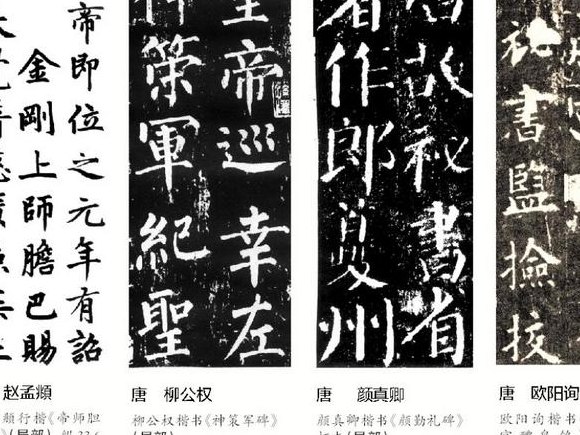 帝即位之元年有詔
金剛上師膽巴賜
帝巡幸左
策軍紀聖
故祕書省
作郎夔州
祕書監撿挍
赵孟頫
頫行楷《帝师胆
唐 柳公权
柳公权楷书《神策军碑》
唐 颜真卿
颜真卿楷书《颜勤礼碑》
唐 欧阳询
欧阳询楷书